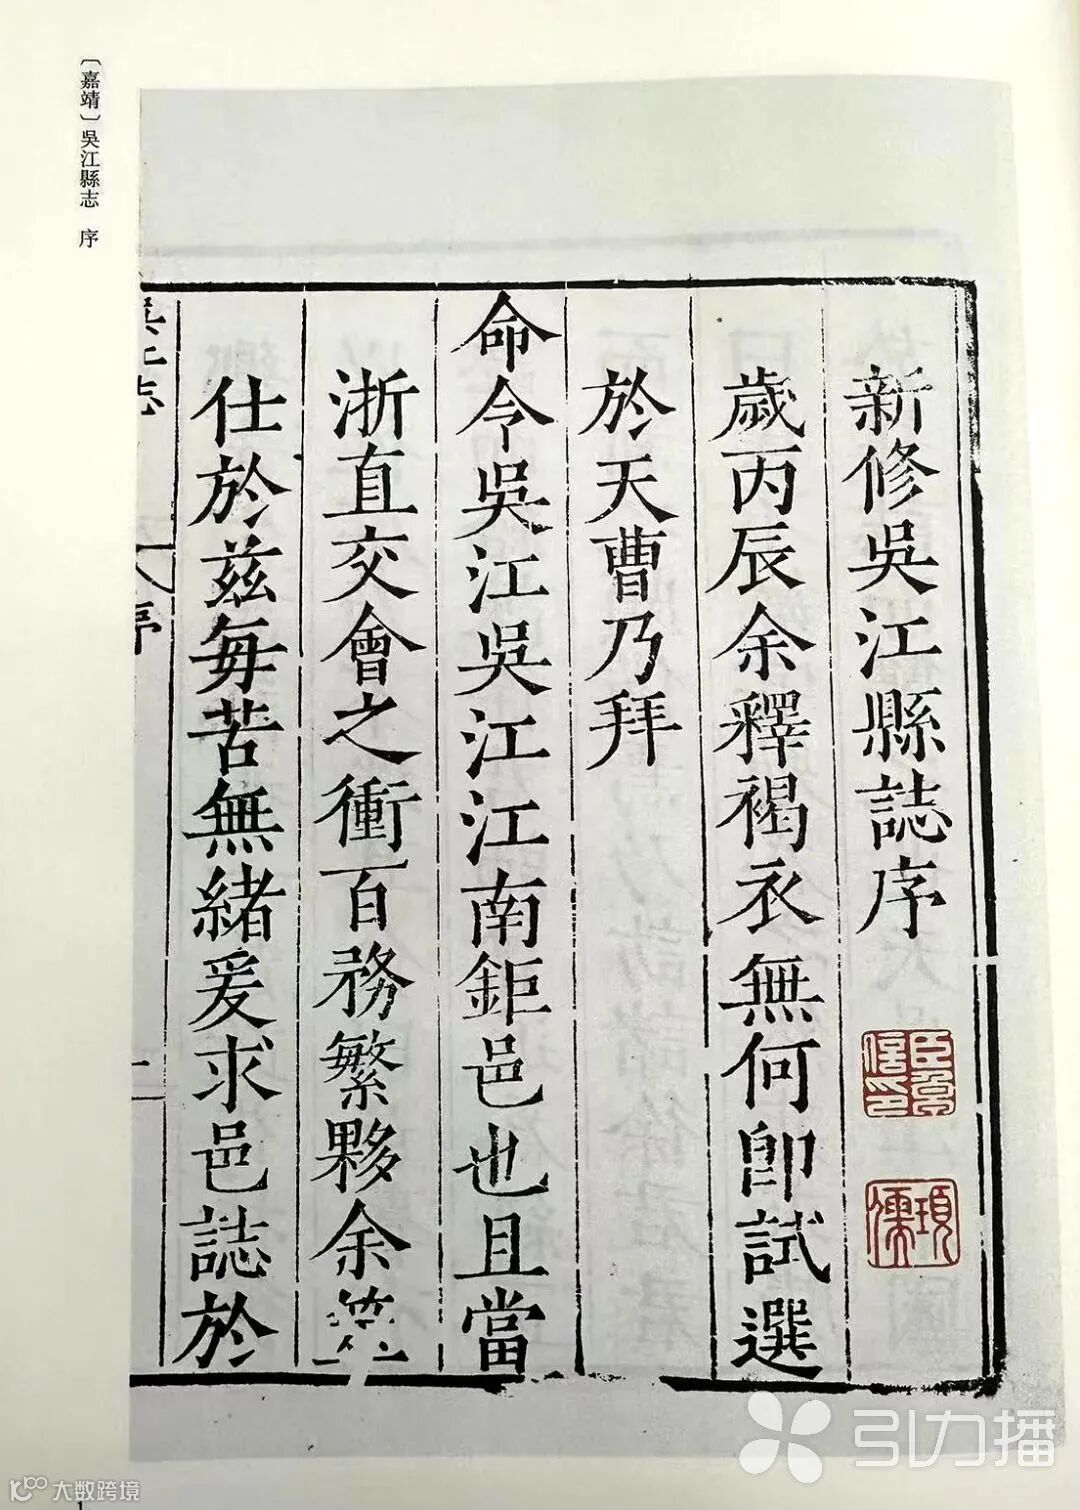 〔嘉靖〕吳江縣志 序
新修吳江縣誌序
歲丙辰余釋褐衣無何卽試選
於天曹乃拜
命令吳江吳江江南鉅邑也且當
浙直交會之衝百務繁夥余筮
仕於茲每苦無緒爰求邑誌於
吳江志 序
項儒
引力播
大数跨境
1